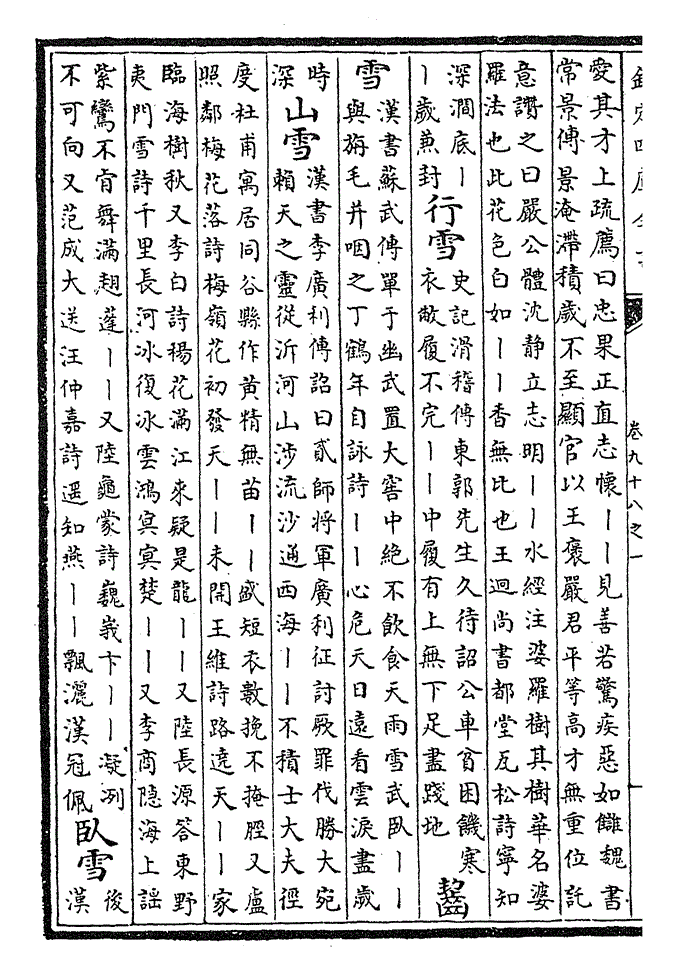 欽定四庫全書
卷九十八之一
愛其才上疏薦曰忠果正直志懷丨丨見善若驚疾惡如讎魏書
常景傳景淹滯積歲不至顯官以王褒嚴君平等高才無重位託
意讚之曰嚴公體沈静立志明丨丨水經注娑羅樹其樹華名娑
羅法也此花色白如丨丨香無比也王迥尚書都堂瓦松詩寧知
深澗底丨
丨歲兼封
行雪
史記滑稽傳東郭先生久待詔公車貧困饑寒
衣敝履不完丨丨中履有上無下足盡踐地
齧
雪
漢書蘇武傳單于幽武置大窖中絶不飲食天雨雪武臥丨丨
與旃毛并咽之丁鶴年自詠詩丨丨心危天日遠看雲淚盡歲
時
深
山雪
漢書李廣利傳詔曰貳師將軍廣利征討厥罪伐勝大宛
賴天之靈從泝河山涉流沙通西海丨丨不積士大夫徑
度杜甫寓居同谷縣作黄精無苗丨丨盛短衣數挽不掩脛又盧
照鄰梅花落詩梅嶺花初發天丨丨未開王維詩路遶天丨丨家
臨海樹秋又李白詩楊花滿江來疑是龍丨丨又陸長源答東野
夷門雪詩千里長河冰復冰雲鴻冥冥楚丨丨又李商隱海上謡
紫鸞不肯舞滿翅蓬丨丨又陸龜蒙詩巍峩卞丨丨凝冽
不可向又范成大送汪仲嘉詩遥知燕丨丨飄灑漢冠佩
臥雪
後
漢